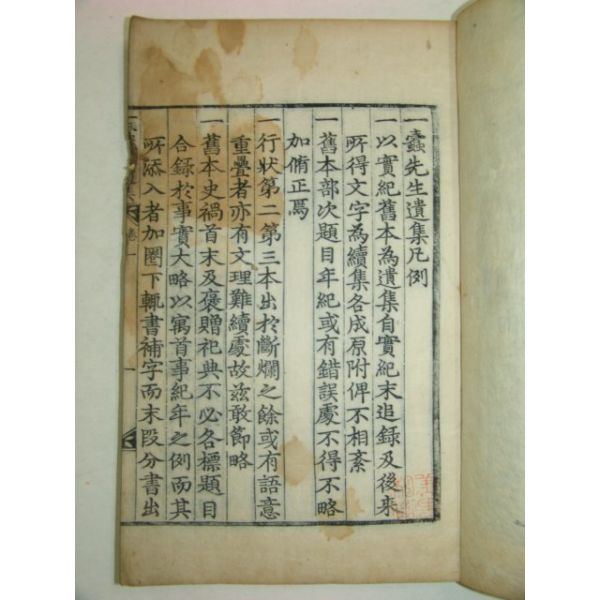 一蠹先生遺集凡例
一以實紀舊本為遺集自實紀末追錄及後來
所得文字為續集各成原附俾不相紊
一舊本部次題目年紀或有錯誤處不得不略
加脩正焉
一行狀第二第三本出於斷爛之餘或有語意
重疊者亦有文理難續處故玆敢節略
一舊本史禍首末及褒贈祀典不必各標題目
合錄於事實大略以寓首事紀年之例而其
所添入者加圈下輒書補字而末段分書出
卷一
一